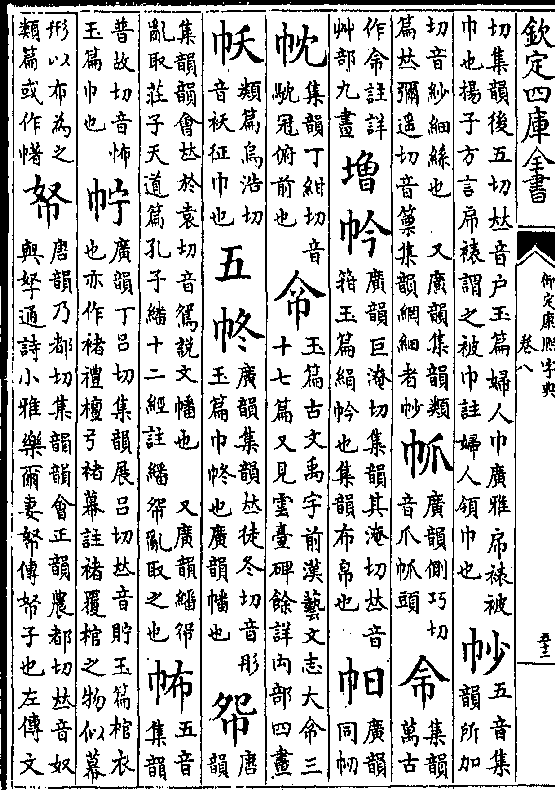 欽定四庫全書
御定康熙字典
卷八
五十三
切集韻後五切𠀤音戶玉篇婦人巾廣雅帍裱被
巾也揚子方言帍裱謂之被巾註婦人領巾也
五音集
韻所加
切音紗細絲也 又廣韻集韻類
篇𠀤彌遥切音篻集韻網細者帆
廣韻側巧切
音爪 頭
集韻
萬古
作命註詳
艸部九畫
增
廣韻巨淹切集韻其淹切𠀤音
箝玉篇絹 也集韻布帛也
廣韻
同帉
帎
集韻丁紺切音
馾冠俯前也
玉篇古文禹字前漢藝文志大命三
十七篇又見雲臺碑餘詳内部四畫
類篇烏浩切
音䄃征巾也
五
廣韻集韻𠀤徒冬切音彤
玉篇巾 也廣韻幡也
㠾
唐
韻
集韻韻會𠀤於袁切音鴛說文幡也 又廣韻繙㠾
亂取莊子天道篇孔子繙十二經註繙㠾亂取之也
五音
集韻
普故切音怖
玉篇巾也
廣韻丁呂切集韻展呂切𠀤音貯玉篇棺衣
也亦作褚禮檀弓褚幕註褚覆棺之物似幕
形以布為之
類篇或作㡏
帑
唐韻乃都切集韻韻會正韻農都切𠀤音奴
與孥通詩小雅樂爾妻帑傳帑子也左傳文